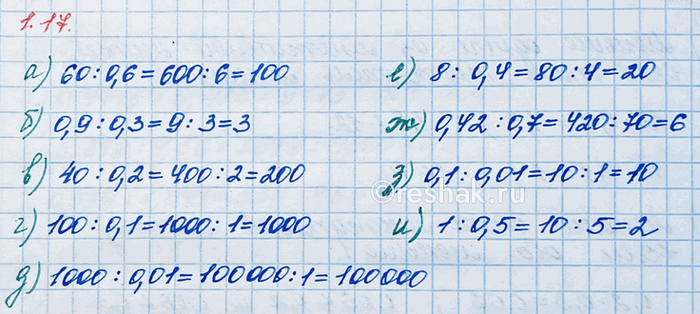 1.17.
а) 60 : 0,6 = 600 : 6 = 100
б) 0,9 : 0,3 = 9 : 3 = 3
в) 40 : 0,2 = 400 : 2 = 200
г) 100 : 0,1 = 1000 : 1 = 1000
д) 1000 : 0,01 = 100000 : 1 = 100000
е) 8 : 0,4 = 80 : 4 = 20
ж) 0,42 : 0,7 = 420 : 70 = 6
з) 0,1 : 0,01 = 10 : 1 = 10
и) 1 : 0,5 = 10 : 5 = 2
©reshak.ru